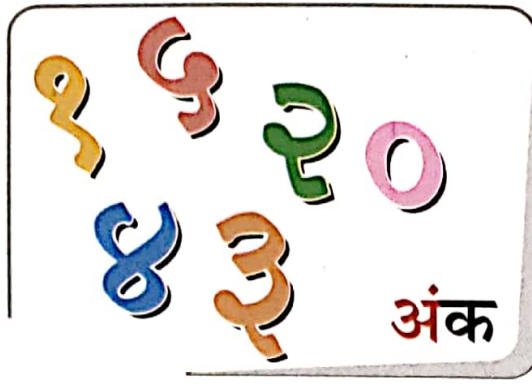 १ ५ २ ०
४ ३
अंक